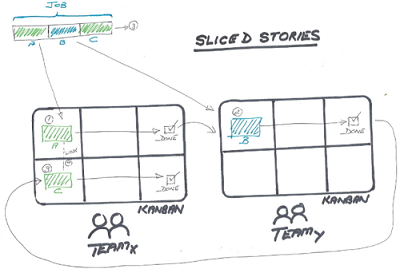 JOB
A B C
SLICED STORIES
A
LINK
C
DONE
DONE
KANBAN
TEAMx
B
DONE
KANBAN
TEAMy